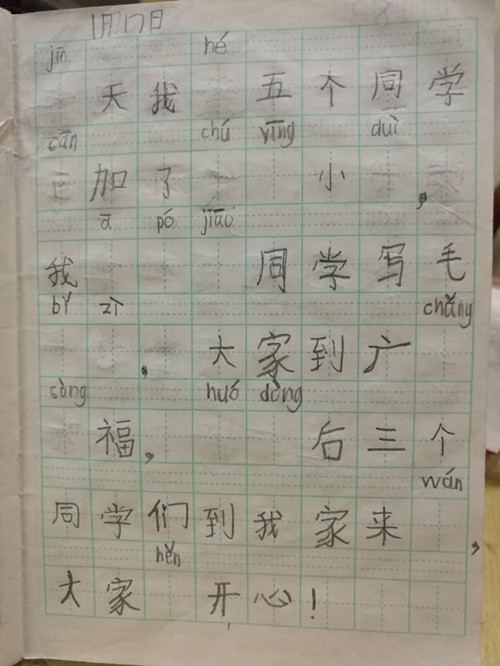 1月17日
jīn hé
天我 五个同学
cān chú yīng duì
加了 小 ,
ā pó jiāo
我 同学写毛
bǐ zì chǎng
, 大家到广
sòng huó dòng
福, 后三个
wán
同学们到我家来 ,
hěn
大家 开心!